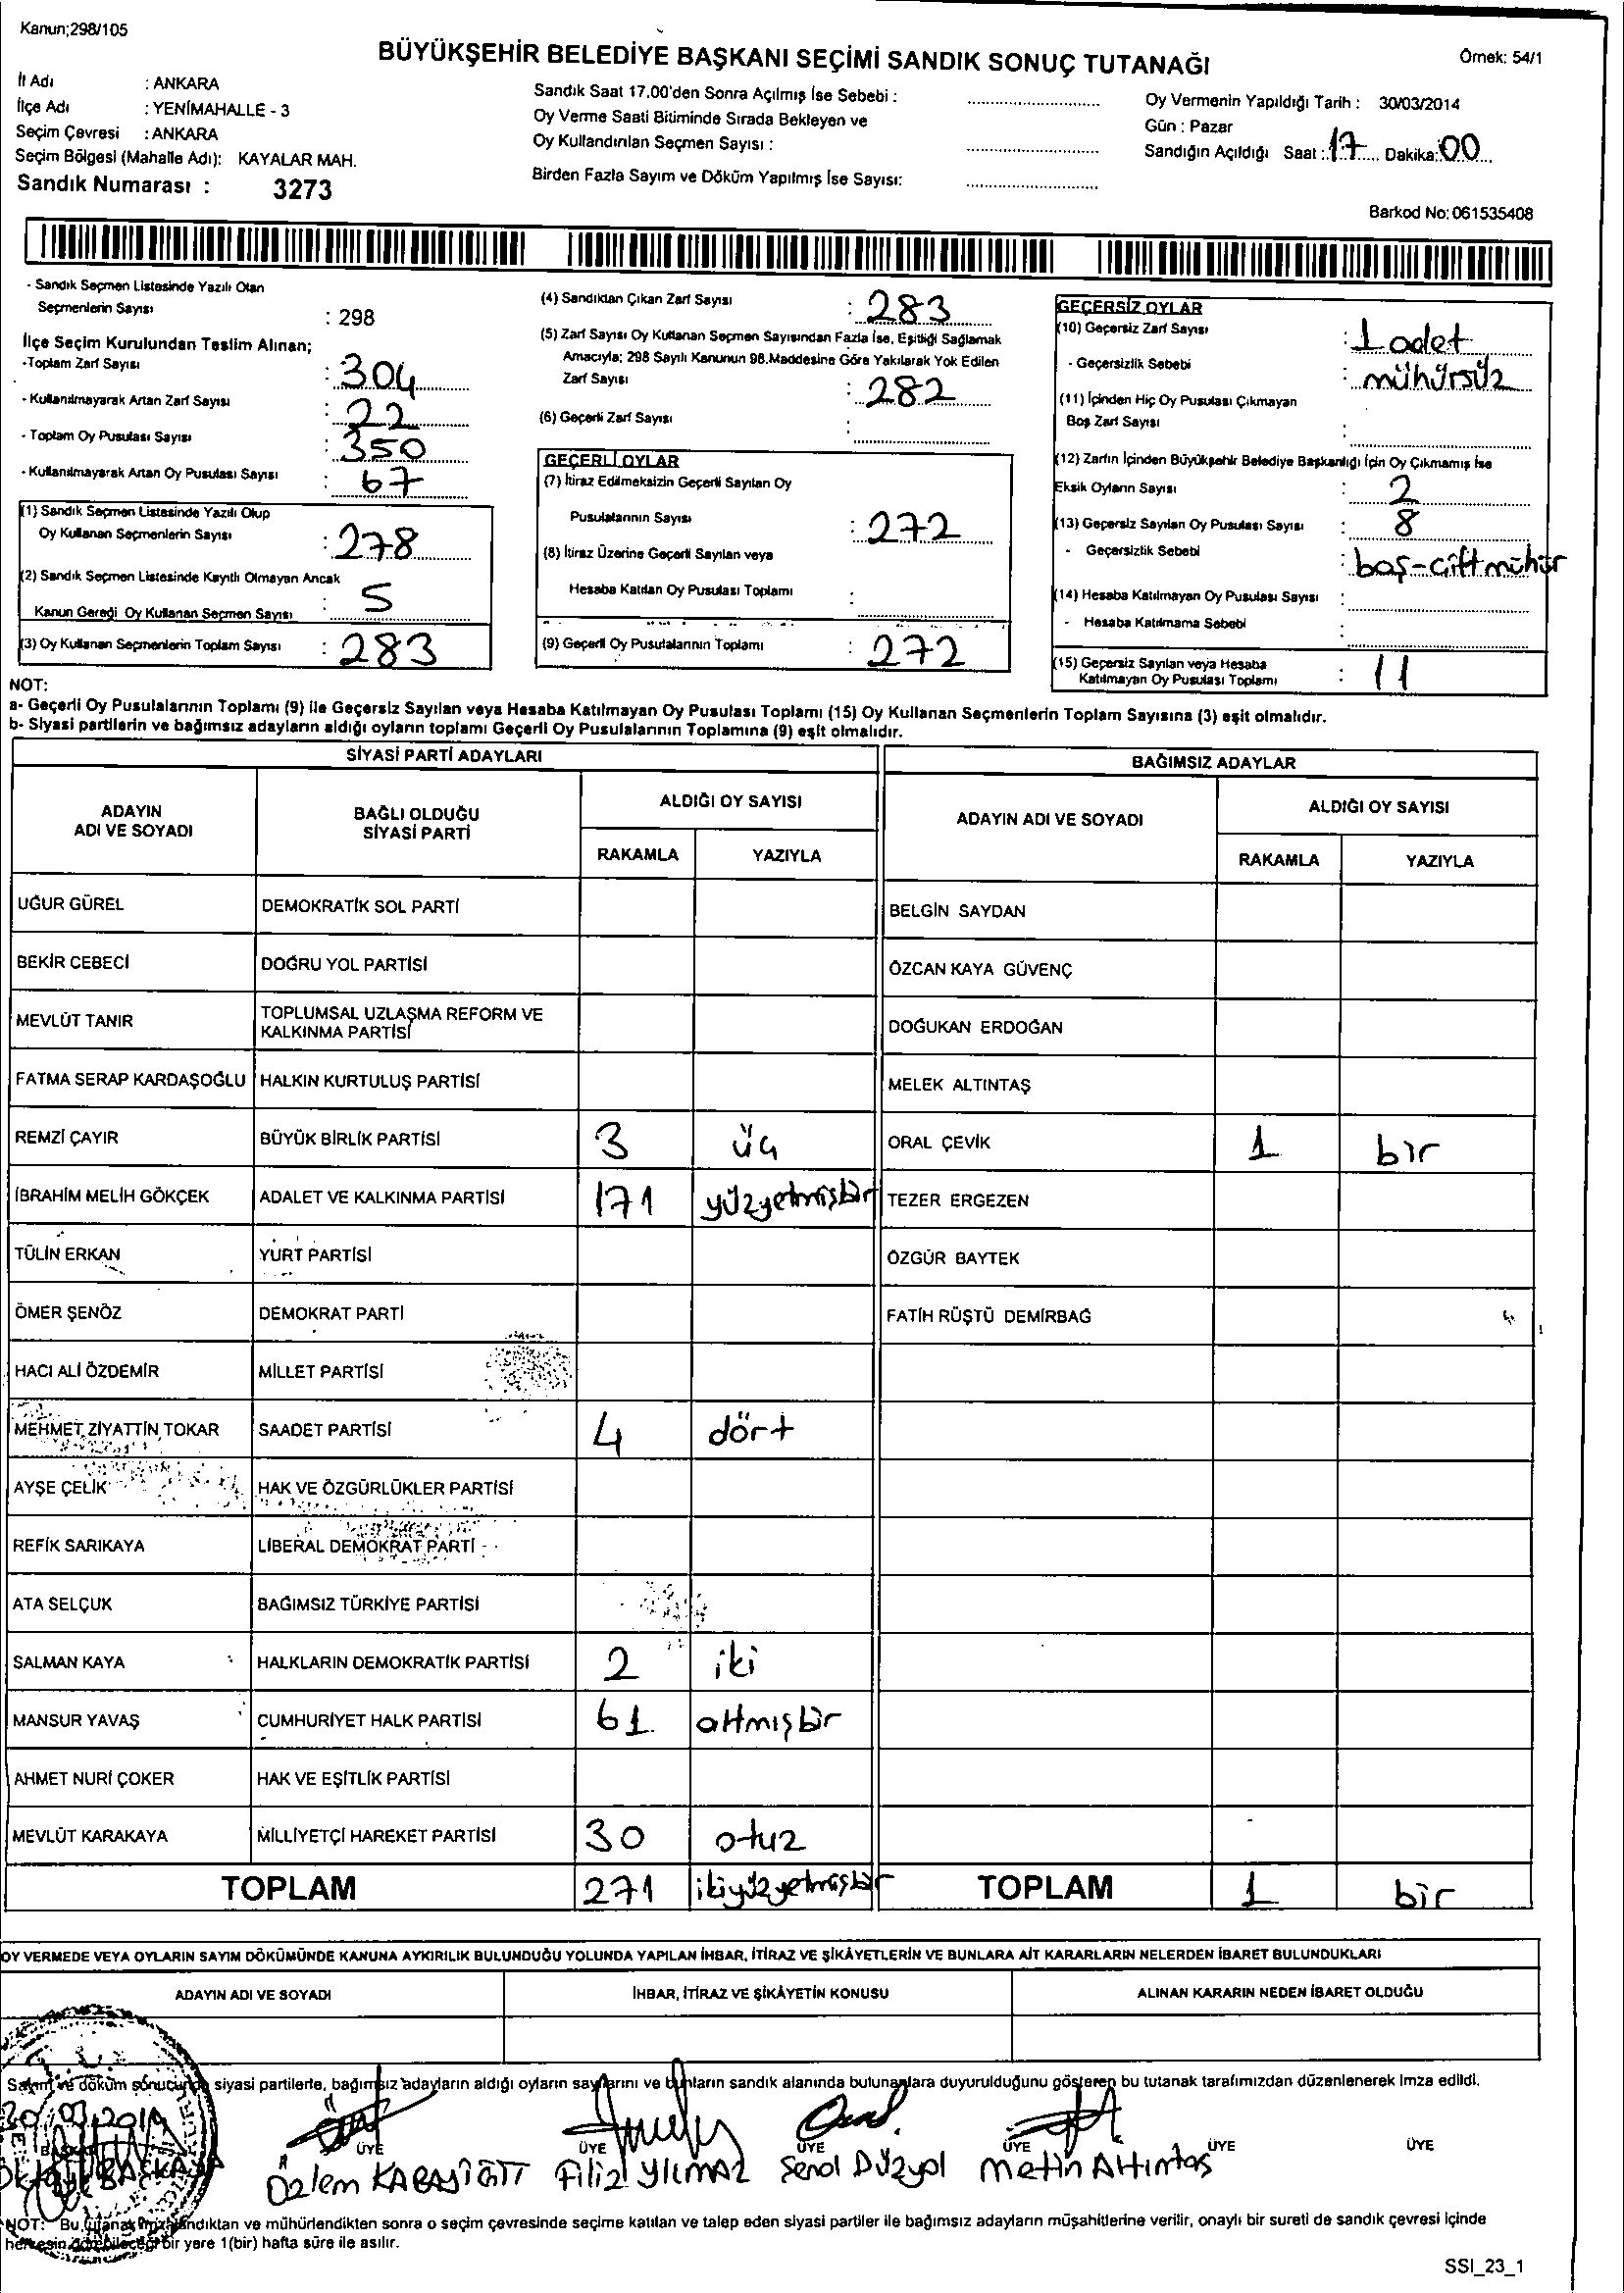 Kanun;298/105
BÜYÜKŞEHİR BELEDİYE BAŞKANI SEÇİMİ SANDIK SONUÇ TUTANAĞI
Örnek: 54/1
İl Adı : ANKARA
İlçe Adı : YENİMAHALLE - 3
Seçim Çevresi : ANKARA
Seçim Bölgesi (Mahalle Adı): KAYALAR MAH.
Sandık Numarası : 3273
Sandık Saat 17.00'den Sonra Açılmış İse Sebebi :
Oy Verme Saati Bitiminde Sırada Bekleyen ve
Oy Kullandırılan Seçmen Sayısı :
Birden Fazla Sayım ve Döküm Yapılmış İse Sayısı:
Oy Vermenin Yapıldığı Tarih : 30/03/2014
Gün : Pazar
Sandığın Açıldığı Saat : 17 Dakika: 00
Barkod No: 061535408
- Sandık Seçmen Listesinde Yazılı Olan
Seçmenlerin Sayısı : 298
İlçe Seçim Kurulundan Teslim Alınan;
-Toplam Zarf Sayısı : 304
- Kullanılmayarak Artan Zarf Sayısı : 22
- Toplam Oy Pusulası Sayısı : 350
- Kullanılmayarak Artan Oy Pusulası Sayısı : 67
(1) Sandık Seçmen Listesinde Yazılı Olup
Oy Kullanan Seçmenlerin Sayısı : 278
(2) Sandık Seçmen Listesinde Kayıtlı Olmayan Ancak
Kanun Gereği Oy Kullanan Seçmen Sayısı : 5
(3) Oy Kullanan Seçmenlerin Toplam Sayısı : 283
(4) Sandıktan Çıkan Zarf Sayısı : 283
(5) Zarf Sayısı Oy Kullanan Seçmen Sayısından Fazla İse, Eşitliği Sağlamak
Amacıyla; 298 Sayılı Kanunun 98.Maddesine Göre Yakılarak Yok Edilen
Zarf Sayısı : 282
(6) Geçerli Zarf Sayısı :
GEÇERLİ OYLAR
(7) İtiraz Edilmeksizin Geçerli Sayılan Oy
Pusulalarının Sayısı : 272
(8) İtiraz Üzerine Geçerli Sayılan veya
Hesaba Katılan Oy Pusulası Toplamı :
(9) Geçerli Oy Pusulalarının Toplamı : 272
GEÇERSİZ OYLAR
(10) Geçersiz Zarf Sayısı : 1 adet
- Geçersizlik Sebebi : mühürsüz
(11) İçinden Hiç Oy Pusulası Çıkmayan
Boş Zarf Sayısı :
(12) Zarfın İçinden Büyükşehir Belediye Başkanlığı İçin Oy Çıkmamış İse
Eksik Oyların Sayısı : 2
(13) Geçersiz Sayılan Oy Pusulası Sayısı : 8
- Geçersizlik Sebebi : boş-çift mühür
(14) Hesaba Katılmayan Oy Pusulası Sayısı :
- Hesaba Katılmama Sebebi :
(15) Geçersiz Sayılan veya Hesaba
Katılmayan Oy Pusulası Toplamı : 11
NOT:
a- Geçerli Oy Pusulalarının Toplamı (9) ile Geçersiz Sayılan veya Hesaba Katılmayan Oy Pusulası Toplamı (15) Oy Kullanan Seçmenlerin Toplam Sayısına (3) eşit olmalıdır.
b- Siyasi partilerin ve bağımsız adayların aldığı oyların toplamı Geçerli Oy Pusulalarının Toplamına (9) eşit olmalıdır.
SİYASİ PARTİ ADAYLARI BAĞIMSIZ ADAYLAR
ADAYIN ADI VE SOYADI BAĞLI OLDUĞU SİYASİ PARTİ ALDIĞI OY SAYISI ADAYIN ADI VE SOYADI ALDIĞI OY SAYISI
RAKAMLA YAZIYLA RAKAMLA YAZIYLA
UĞUR GÜREL DEMOKRATİK SOL PARTİ BELGİN SAYDAN
BEKİR CEBECİ DOĞRU YOL PARTİSİ ÖZCAN KAYA GÜVENÇ
MEVLÜT TANIR TOPLUMSAL UZLAŞMA REFORM VE KALKINMA PARTİSİ DOĞUKAN ERDOĞAN
FATMA SERAP KARDAŞOĞLU HALKIN KURTULUŞ PARTİSİ MELEK ALTINTAŞ
REMZİ ÇAYIR BÜYÜK BİRLİK PARTİSİ 3 üç ORAL ÇEVİK 1 bir
İBRAHİM MELİH GÖKÇEK ADALET VE KALKINMA PARTİSİ 171 yüzyetmişbir TEZER ERGEZEN
TÜLİN ERKAN YURT PARTİSİ ÖZGÜR BAYTEK
ÖMER ŞENÖZ DEMOKRAT PARTİ FATİH RÜŞTÜ DEMİRBAĞ
HACI ALİ ÖZDEMİR MİLLET PARTİSİ
MEHMET ZİYATTİN TOKAR SAADET PARTİSİ 4 dört
AYŞE ÇELİK HAK VE ÖZGÜRLÜKLER PARTİSİ
REFİK SARIKAYA LİBERAL DEMOKRAT PARTİ
ATA SELÇUK BAĞIMSIZ TÜRKİYE PARTİSİ
SALMAN KAYA HALKLARIN DEMOKRATİK PARTİSİ 2 iki
MANSUR YAVAŞ CUMHURİYET HALK PARTİSİ 61 altmışbir
AHMET NURİ ÇOKER HAK VE EŞİTLİK PARTİSİ
MEVLÜT KARAKAYA MİLLİYETÇİ HAREKET PARTİSİ 30 otuz
TOPLAM 271 ikiyüzyetmişbir TOPLAM 1 bir
OY VERMEDE VEYA OYLARIN SAYIM DÖKÜMÜNDE KANUNA AYKIRILIK BULUNDUĞU YOLUNDA YAPILAN İHBAR, İTİRAZ VE ŞİKÂYETLERİN VE BUNLARA AİT KARARLARIN NELERDEN İBARET BULUNDUKLARI
ADAYIN ADI VE SOYADI İHBAR, İTİRAZ VE ŞİKÂYETİN KONUSU ALINAN KARARIN NEDEN İBARET OLDUĞU
Sayım ve döküm sonucunda siyasi partilerle, bağımsız adayların aldığı oyların sayılarını ve bunların sandık alanında bulunanlara duyurulduğunu gösteren bu tutanak tarafımızdan düzenlenerek imza edildi.
ÜYE ÜYE ÜYE ÜYE ÜYE ÜYE
Özlem KARAYİĞİT Filiz YILMAZ Şenol Düzyol Metin Altıntaş
NOT: Bu tutanak imzalandıktan ve mühürlendikten sonra o seçim çevresinde seçime katılan ve talep eden siyasi partiler ile bağımsız adayların müşahitlerine verilir, onaylı bir sureti de sandık çevresi içinde
herkesin görebileceği bir yere 1(bir) hafta süre ile asılır.
SSI_23_1